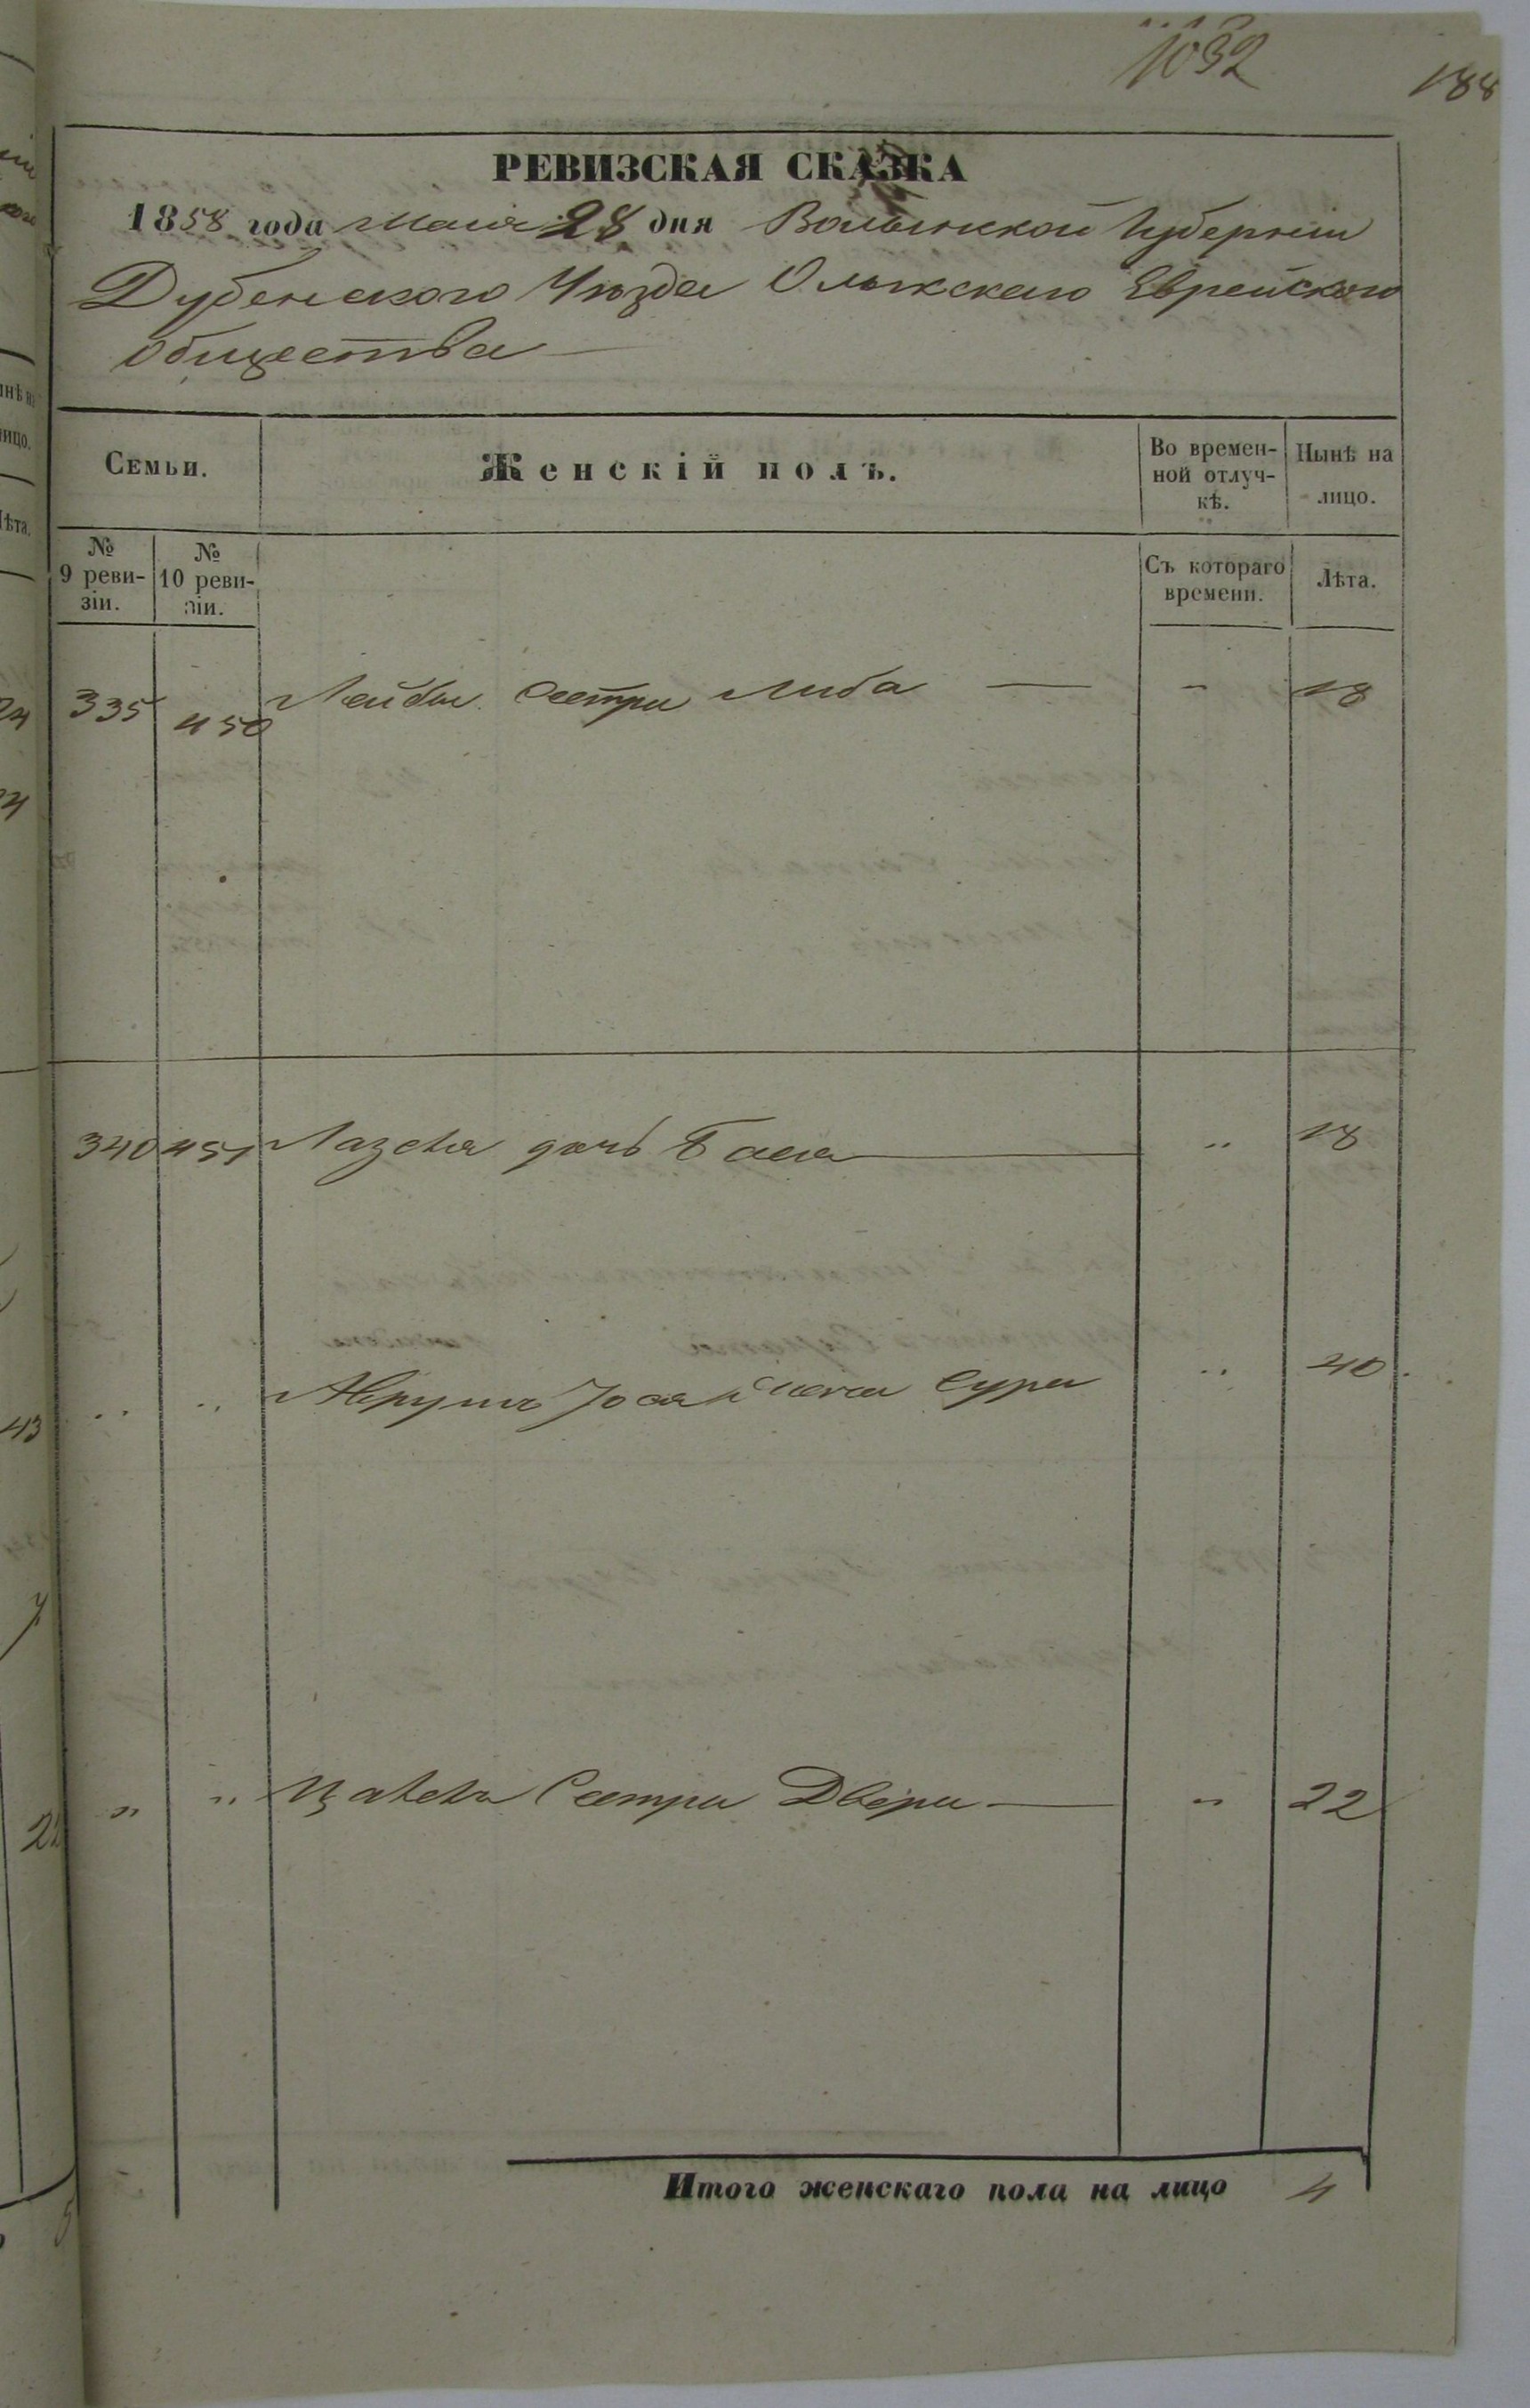 1032
188
РЕВИЗСКАЯ СКАЗКА
1858 года маия 28 дня Волынской Губернии
Дубенского Уезда Олыкскаго Еврейского
общества
Семьи.
Женскій полъ.
Во времен-
ной отлуч-
кѣ.
Нынѣ на
лицо.
№
9 реви-
зіи.
№
10 реви-
зіи.
Съ котораго
времени.
Лѣта.
335 450 Лейбы сестра Либа — " 18
340 451 Лазеля дочь Бася — " 18
" " Аврумъ Іося жена Сура " 40
" " сестра Двера — " 22
Итого женскаго пола на лицо 4